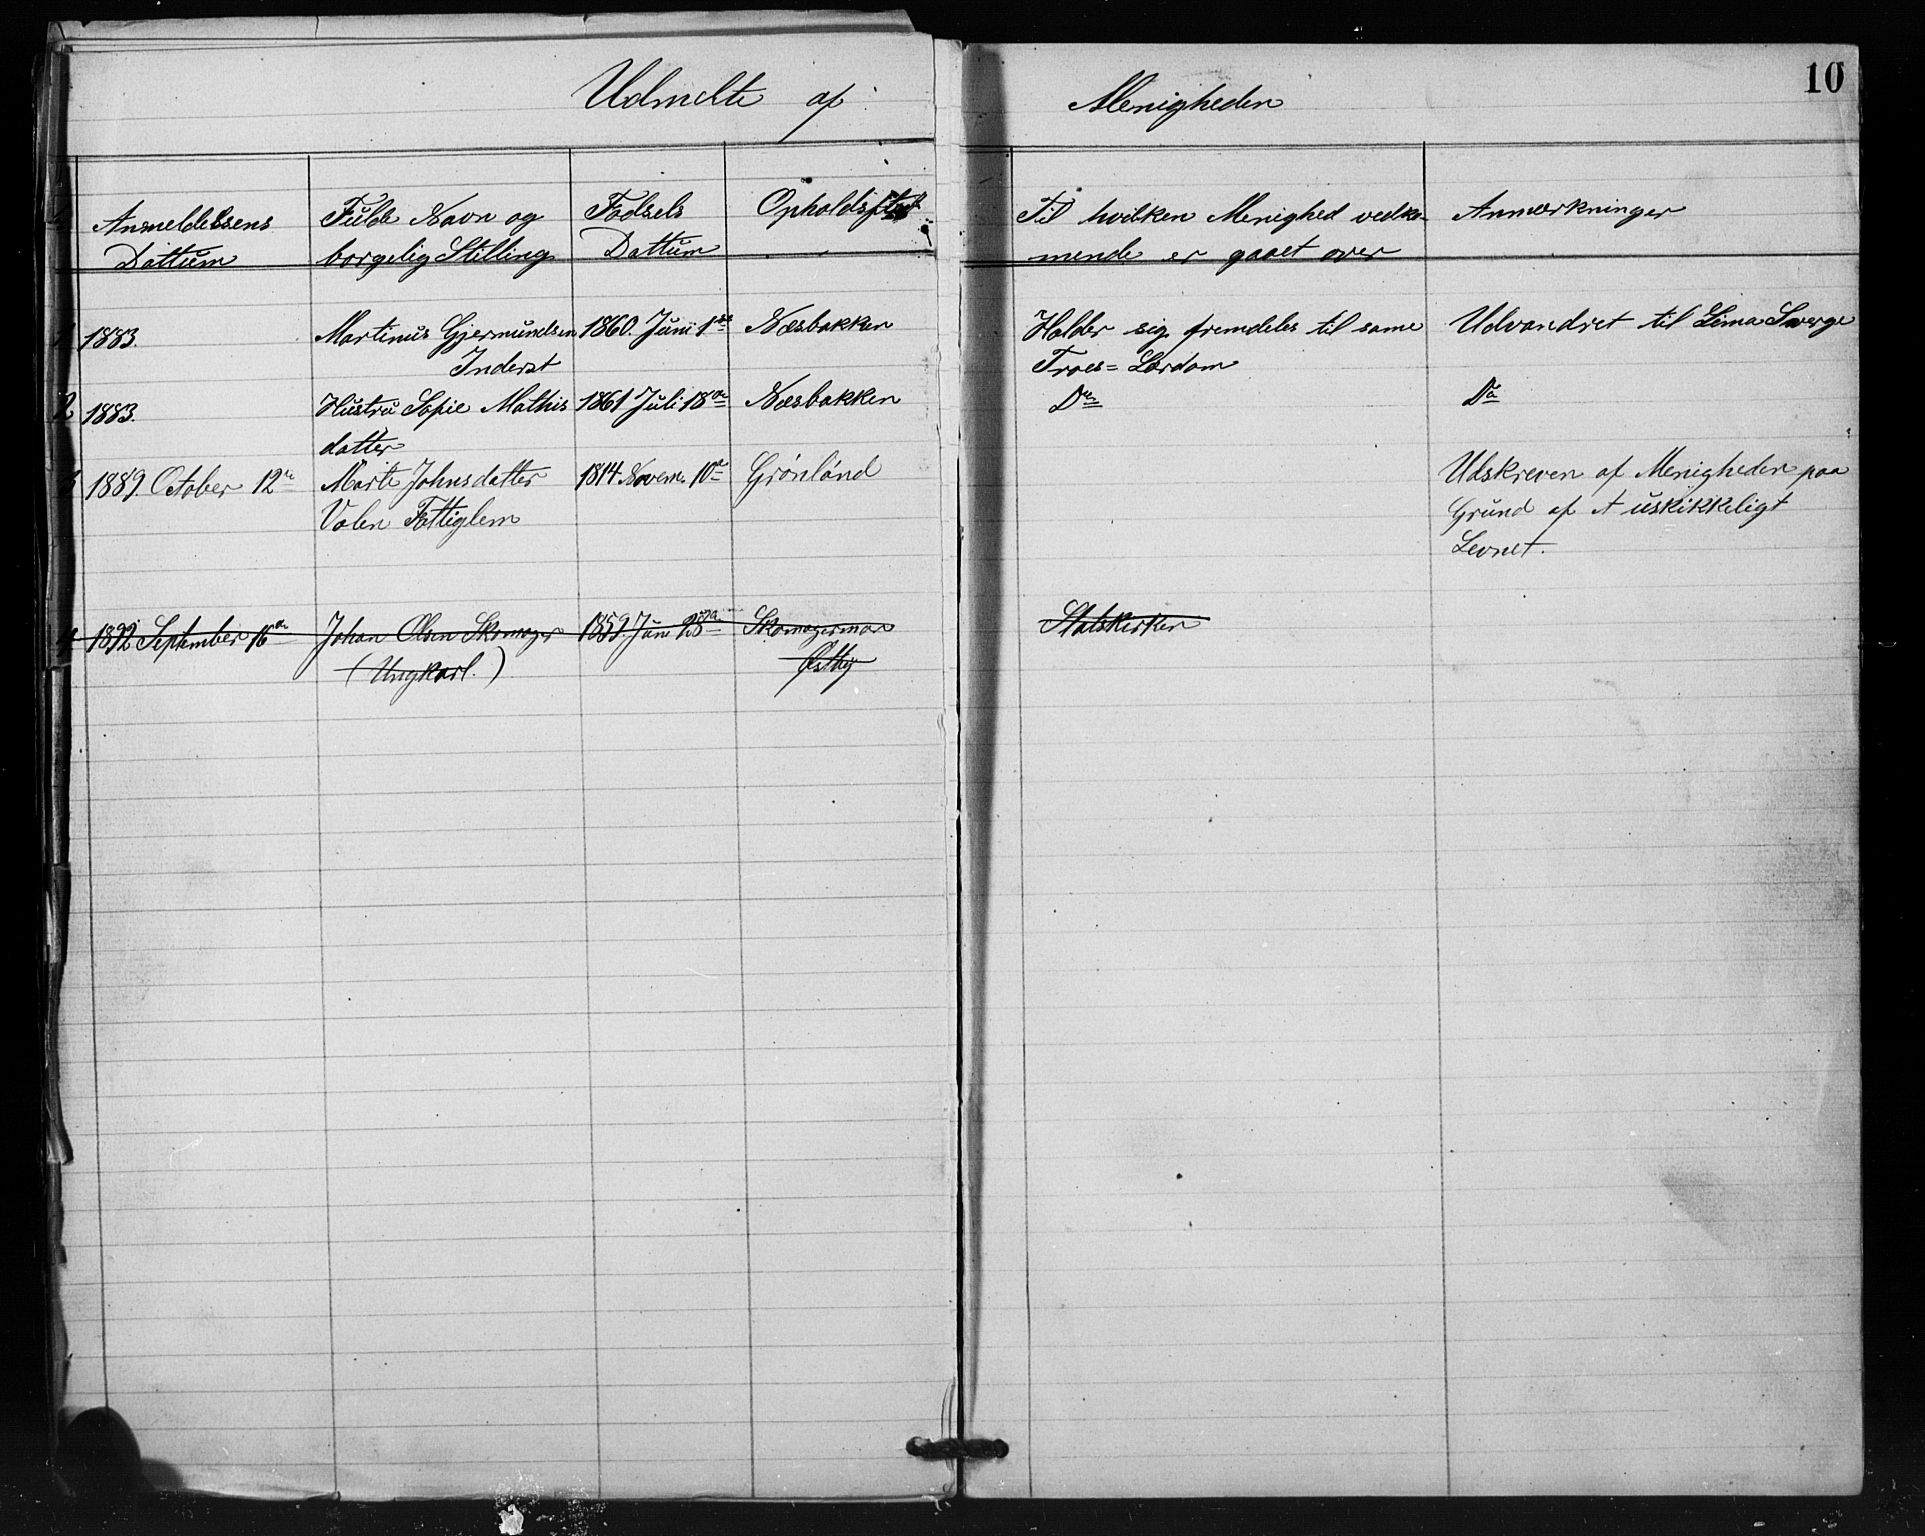 10
Udmelte af Menigheden
Anmeldelsens Dattum
Fulde Navn og borgelig Stilling
Fødsels Dattum
Opholdsted
Til hvilken Menighed vedko-
mende er gaaet over
Anmærkninger
1 1883. Martinus Gjermundsen 1860. Juni 1ste Næsbakken Holder sig fremdeles til same Udvandret til Lima Sverge
Inderst Troes= Lærdom
2 1883. Hustru Sofie Mathis 1861 Juli 18de Næsbakken Do Do
datter
3 1889 October 12te Marte Johnsdatter 1814 Novem. 10de Grönlånd Udskreven af Menigheden paa
Volen Fattiglem Grund af et uskikkeligt
Levnet.
4 1892 September 16de Johan Olsen Skomager 1859. Juni 28de Skomagermoe Statskirken
(Ungkarl.) Østby